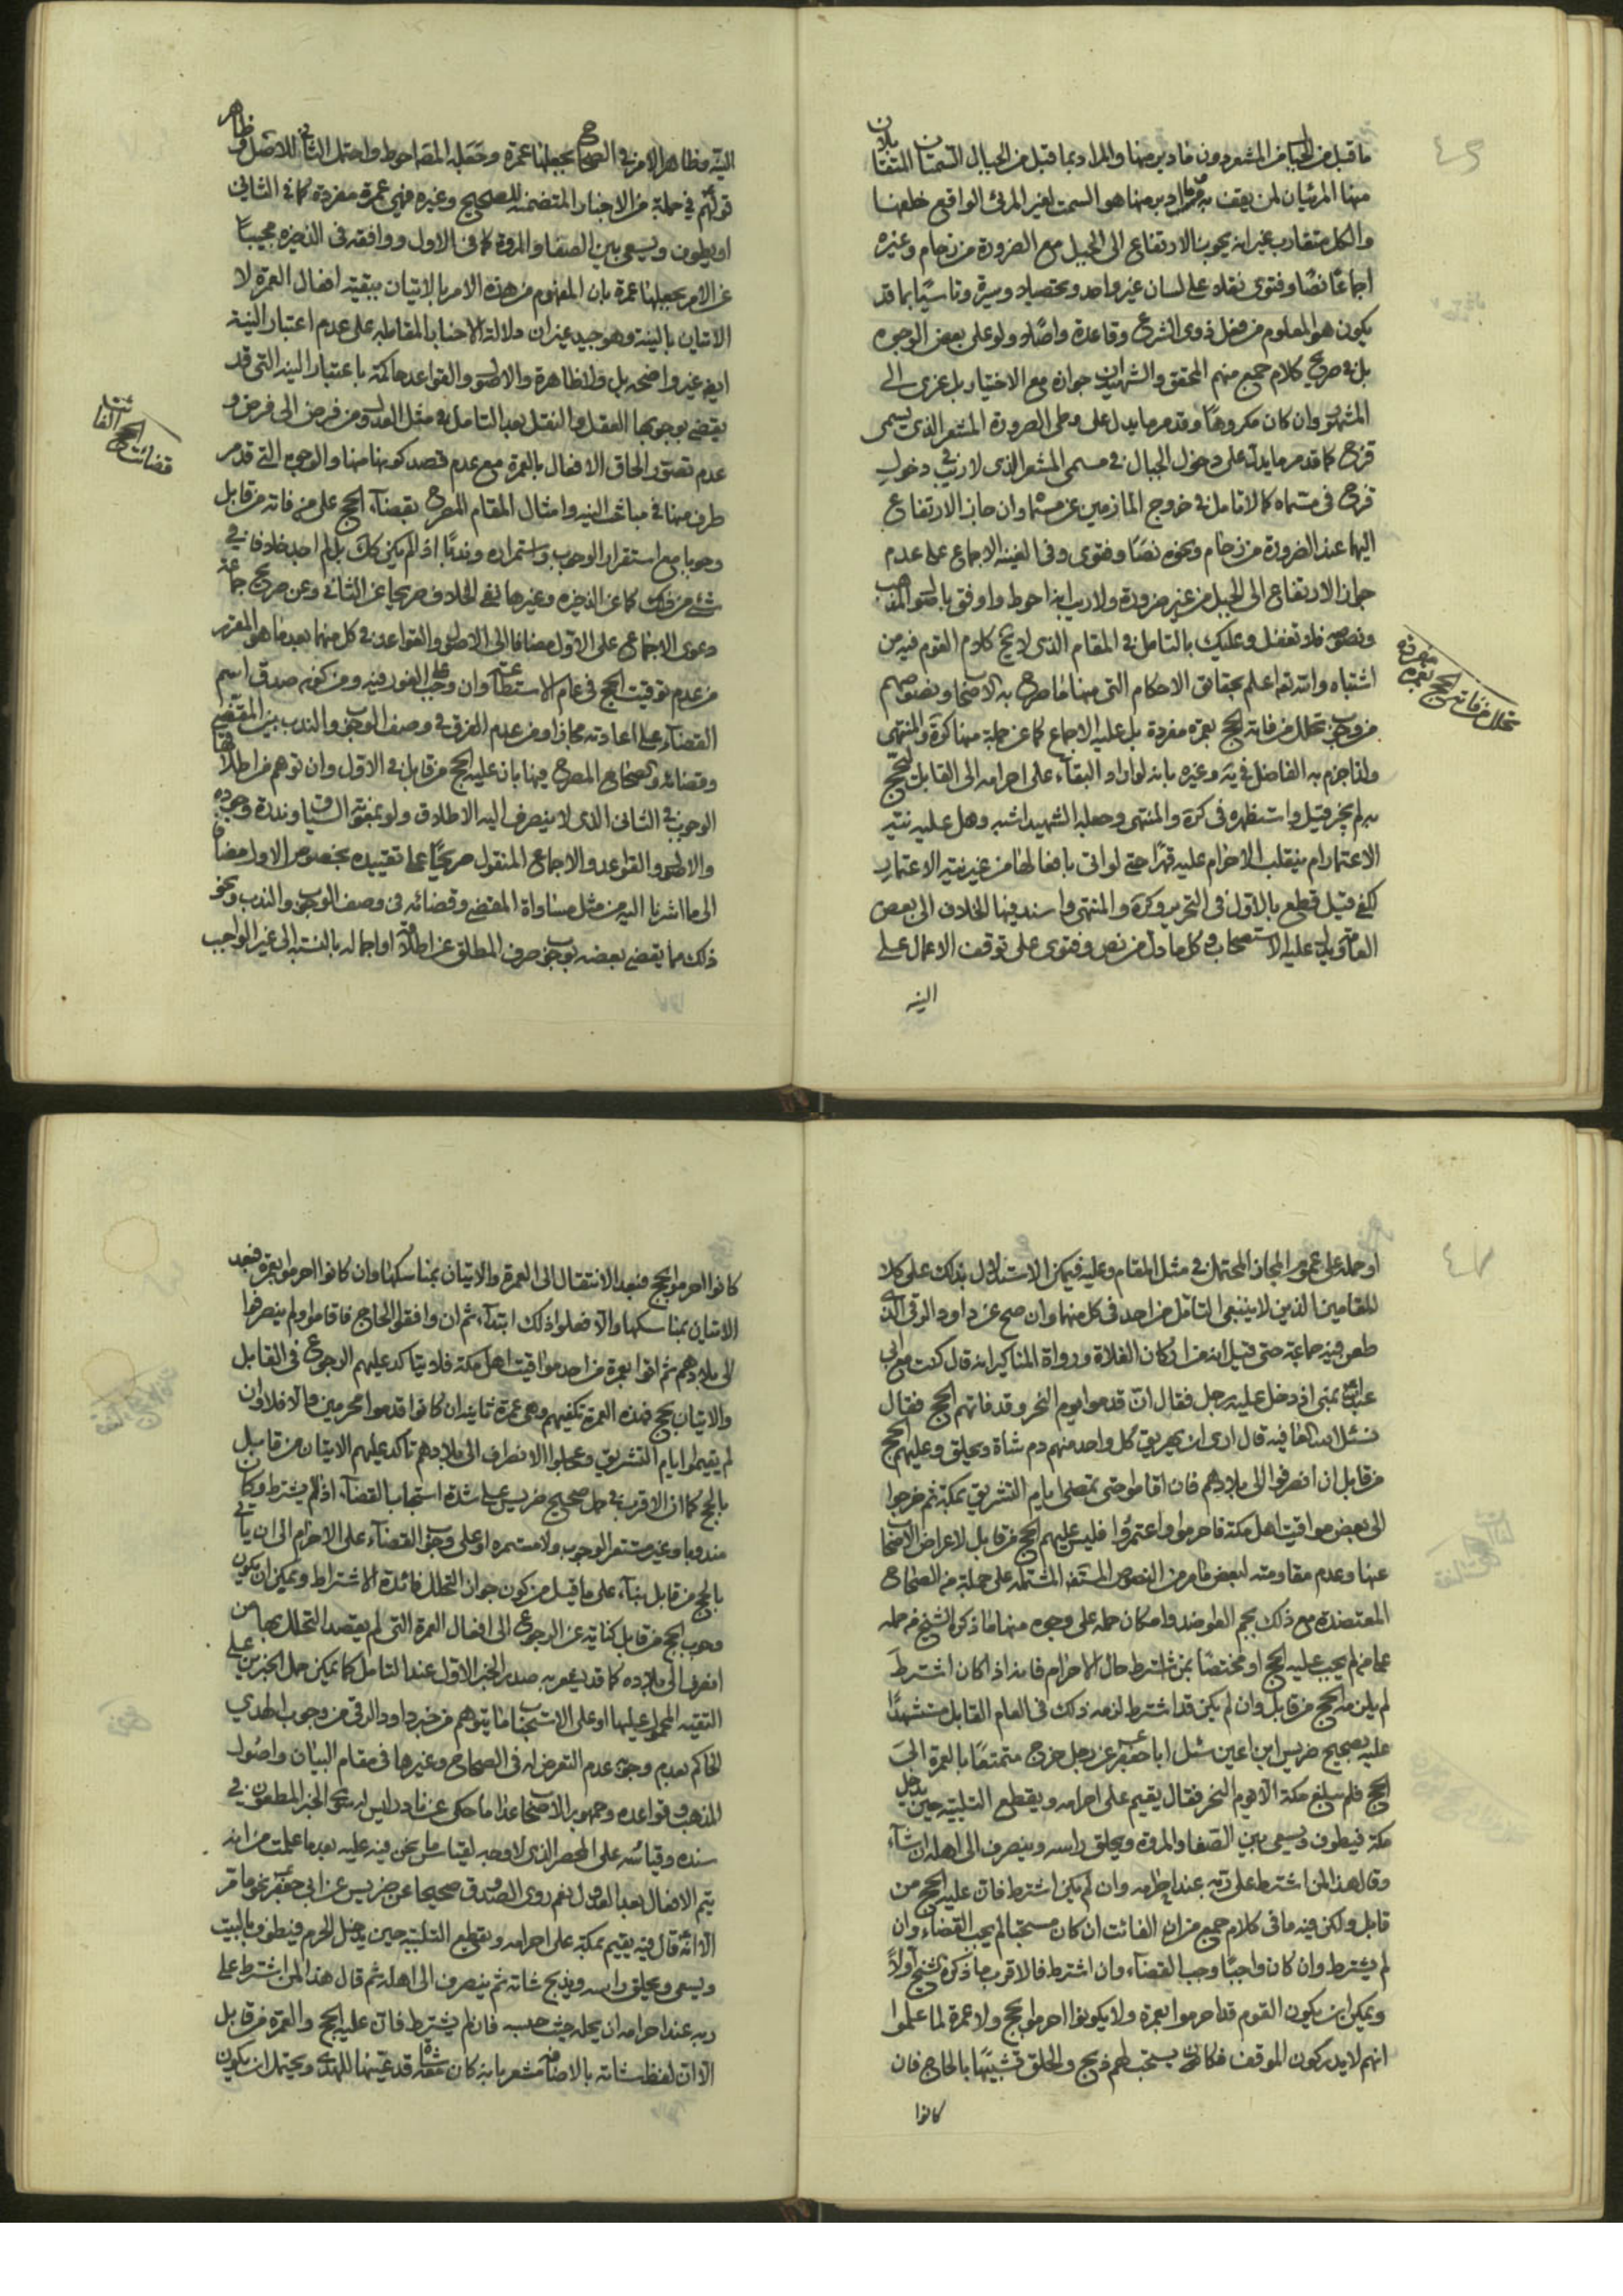 ما قبل من الجبال من المشعر دون ما دبر منها والمراد بما قبل من الجبال السمتان المتقابلان
منها المرئيان لمن يقف به وما دبر منها هو السمت لغير المرئي الواقع خلفها
والكل متقارب غير انه يجوز الارتفاع الى الجبل مع الضرورة من زحام وغيره
اجماعًا نصًا وفتوى نقله على لسان غير واحد وتحصيلا وسيرة وتاسيًا بما قد
يكون هو المعلوم من فعل ذوى الشرع وقاعدة واصلًا ولو على بعض الوجوه
بل في صريح كلام جمع منهم المحقق والشهيدان جوازه مع الاختيار بل عزى الى
المشهور وان كان مكروهًا وقد مر ما يدل على وطى الصرورة المشعر الذى يسمى
قزح كما قد مر ما يدل على دخول الجبال في مسمى المشعر الذى لا ريب في دخول
قزح فى مسماه كما لا تامل في خروج المازمين عن مسماه وان جاز الارتفاع
اليها عند الضرورة من زحام ونحوه نصًا وفتوى وفى الغنيه الاجماع على عدم
جواز الارتفاع الى الجبل من غير ضرورة ولا ريب انه احوط واوفق باصول المذهب
ونصوصه فلا تغفل وعليك بالتامل في المقام الذى لا يخ كلام القوم فيه من
اشتباه والله تعم اعلم بحقائق الاحكام التى منها ما صرح به الاصحاب ونصوصهم
من وجوب تحلل من فاته الحج بعمرة مفردة بل عليه الاجماع كما عن جملة منها كرة والمنتهى
ولذا جزم به الفاضل في يه وغيره بانه لو اراد البقاء على احرامه الى القابل ليحج
به لم يجز قيل واستظهره فى كرة والمنتهى وجعله الشهيد اشبه وهل عليه نية
الاعتمار ام ينقلب الاحرام عليه قهرًا حتى لو اتى بافعالها من غير نية الاعتمار
كفى قيل قطع بالاول فى التحرير وكرة والمنتهى واسند فيها الخلاف الى بعض
العامة ويدل عليه الاستصحاب وكل ما دل من نص وفتوى على توقف الاعمال على
النيه
تحلل من فاته الحج بعمرة مفردة
النية وظاهر الامر في الصحاح بجعلها عمرة وجعله المصه احوط واحتمل الثاني للاصل وظاهر
قولهم في جملة من الاخبار المتضمنه للصحيح وغيره فهي عمرة مفردة كما في الثاني
او يطوف ويسعى بين الصفا والمروة كما فى الاول ووافقه فى الذخيره مجيبًا
عن الامر بجعلها عمرة بان المفهوم من هذه الامر بالاتيان ببقية افعال العمرة لا
الاتيان بالنية وهو جيد غير ان دلالة الاخبار المقابله على عدم اعتبار النية
ايض غير واضحه بل ولا ظاهرة والاصول والقواعد حاكمة باعتبار النيه التى قد
يقضى بوجوبها العقل والنقل بعد التامل في مثل العدول من فرض الى فرض و
عدم تصور الحاق الافعال بالعمرة مع عدم قصد كونها منها والوجوه التى قد مر
طرف منها في مباحث النيه وامثال المقام المصرح بقضاء الحج على من فاته من قابل
وجوبا مع استقرار الوجوب واستمراره وندبًا اذا لم يكن كك بل لم اجد خلافا في
شئ من ذلك كما عن الذخيره وغيرها نفى الخلاف صريحا عن الثانى وعن صريح جماعة
دعوى الاجماع على الاول مضافا الى الاصول والقواعد في كل منهما بعد ما هو المقرر
من عدم توقيت الحج في عام الاستطاعة وان وجب الفور فيه ومن كونه صدق اسم
القضاء على اعادته مجازا ومن عدم الفرق في وصف الوجوب والندب بين المقضي
وقضائه والصحاح المصرح فيها بان عليه الحج من قابل في الاول وان توهم من اطلاقها
الوجوب في الثانى الذى لا ينصرف اليه الاطلاق ولو بمعونة السياق وندرة وجوده
والاصول والقواعد والاجماع المنقول صريحًا على تقييده بخصوص الاول مضافا
الى ما اشرنا اليه من مثل مساواة المقضى وقضائه فى وصف الوجوب والندب ونحو
ذلك مما يقضى بعضه بوجوب صرف المطلق عن اطلاقه او اجماله بالنسبة الى غير الواجب
قضاء الحج الفائت
او حمله على عموم المجاز المحتمل في مثل المقام وعليه فيمكن الاستدلال بذلك على كلا
المقامين الذين لا ينبغى التامل من احد فى كل منهما وان صح عن داود الرقى الذى
طعن فيه جماعة حتى قيل انه من اركان الغلاة ورواة المناكير انه قال كنت مع ابى
عبد الله بمنى اذ دخل عليه رجل فقال ان قدموا يوم النحر وقد فاتهم الحج فقال
نسئل الله العافيه قال ارى ان يهريق كل واحد منهم دم شاة ويحلق وعليهم الحج
من قابل ان انصرفوا الى بلادهم فان اقاموا حتى تمضى ايام التشريق بمكة ثم خرجوا
الى بعض مواقيت اهل مكة فاحرموا واعتمروا فليس عليهم الحج من قابل لاعراض الاصحاب
عنها وعدم مقاومته لبعض ما مر من النصوص المستفيضه المشتمله على جملة من الصحاح
المعتضدة مع ذلك بجم العواضد وامكان حمله على وجوه منها ما ذكره الشيخ من حمله
على من لم يجب عليه الحج او مختصًا بمن اشترط حال الاحرام فانه اذا كان اشترط
لم يلزمه الحج من قابل وان لم يكن قد اشترط لزمه ذلك فى العام القابل مستشهدًا
عليه بصحيح ضريس ابن اعين سئل ابا جعفر عن رجل خرج متمتعًا بالعمرة الى
الحج فلم يبلغ مكة الا يوم النحر فقال يقيم على احرامه ويقطع التلبية حين يدخل
مكة فيطوف ويسعى بين الصفا والمروة ويحلق راسه وينصرف الى اهله ان شاء
وقال هذا لمن اشترط على ربه عند احرامه وان لم يكن اشترط فان عليه الحج من
قابل ولكن فيه ما فى كلام جمع من ان الفائت ان كان مستحبا لم يجب القضاء وان
لم يشترط وان كان واجبًا وجب القضاء وان اشترط فالاقرب ما ذكره الشيخ اولًا
ويمكن ان يكون القوم قد احرموا بعمرة ولا يكونوا احرموا بحج ولا عمرة لما علموا
انهم لا يدركون الموقف فكان يستحب لهم ذبح والحلق تشبيهًا بالحاج فان
كانوا
كانوا احرموا بحج فبعد الانتقال الى العمرة والاتيان بمناسكها وان كانوا احرموا بعمرة فبعد
الاتيان بمناسكها والا فعلوا ذلك ابتداء ثم ان وافقوا الحاج فاقاموا ولم ينصرفوا
الى بلادهم ثم اتوا بعمرة من احد مواقيت اهل مكة فلا يتاكد عليهم الرجوع فى القابل
والاتيان بحج فهذه العمرة تكفيهم وهى عمرة ثانية ان كانوا قدموا محرمين والا فلا وان
لم يقيموا ايام التشريق وعجلوا الانصراف الى بلادهم تاكد عليهم الاتيان من قابل
بالحج كما ان الاقرب في حمل صحيح ضريس على شدة استحباب القضاء اذا لم يشترط وكان
مندوبا وغير مستقر الوجوب ولا مستمره او على وجوب القضاء على الاحرام الى ان ياتى
بالحج من قابل بناء على ما قيل من كون جواز التحلل فائدة الاشتراط ويمكن ان يكون
وجوب الحج من قابل كناية عن الرجوع الى افعال العمرة التى لم يقصد التحلل بها من
انصرف الى بلاده كما قد يشعر به صدر الخبر الاول عند التامل كما يمكن حمل الخبرين على
التقيه المحمول عليها او على الاستحباب ما يتوهم من خبر داود الرقى من وجوب الهدى
الحاكم بعدم وجوبه عدم التعرض له فى الصحاح وغيرها فى مقام البيان واصول
المذهب وقواعده وجمهور الاصحاب عدا ما حكى عن نادر ليس له سوى الخبر المطعون في
سنده وقياسه على المحصر الذى لا وجه لقياس ما نحن فيه عليه بعد ما علمت من انه
يتم الافعال بعد العدول نعم روى الصدوق صحيحا عن ضريس عن ابى جعفر نحو ما مر
الا انه قال فيه يقيم بمكة على احرامه ويقطع التلبية حين يدخل الحرم فيطوف بالبيت
ويسعى ويحلق راسه ويذبح شاته ثم ينصرف الى اهله ثم قال هذا لمن اشترط على
ربه عند احرامه ان يحله حيث حبسه فان لم يشترط فان عليه الحج والعمرة من قابل
الا ان لفظ شاته بالاضافة مشعر بانه كان معه شاة قد عينها للهدى ويحتمل ان يكون